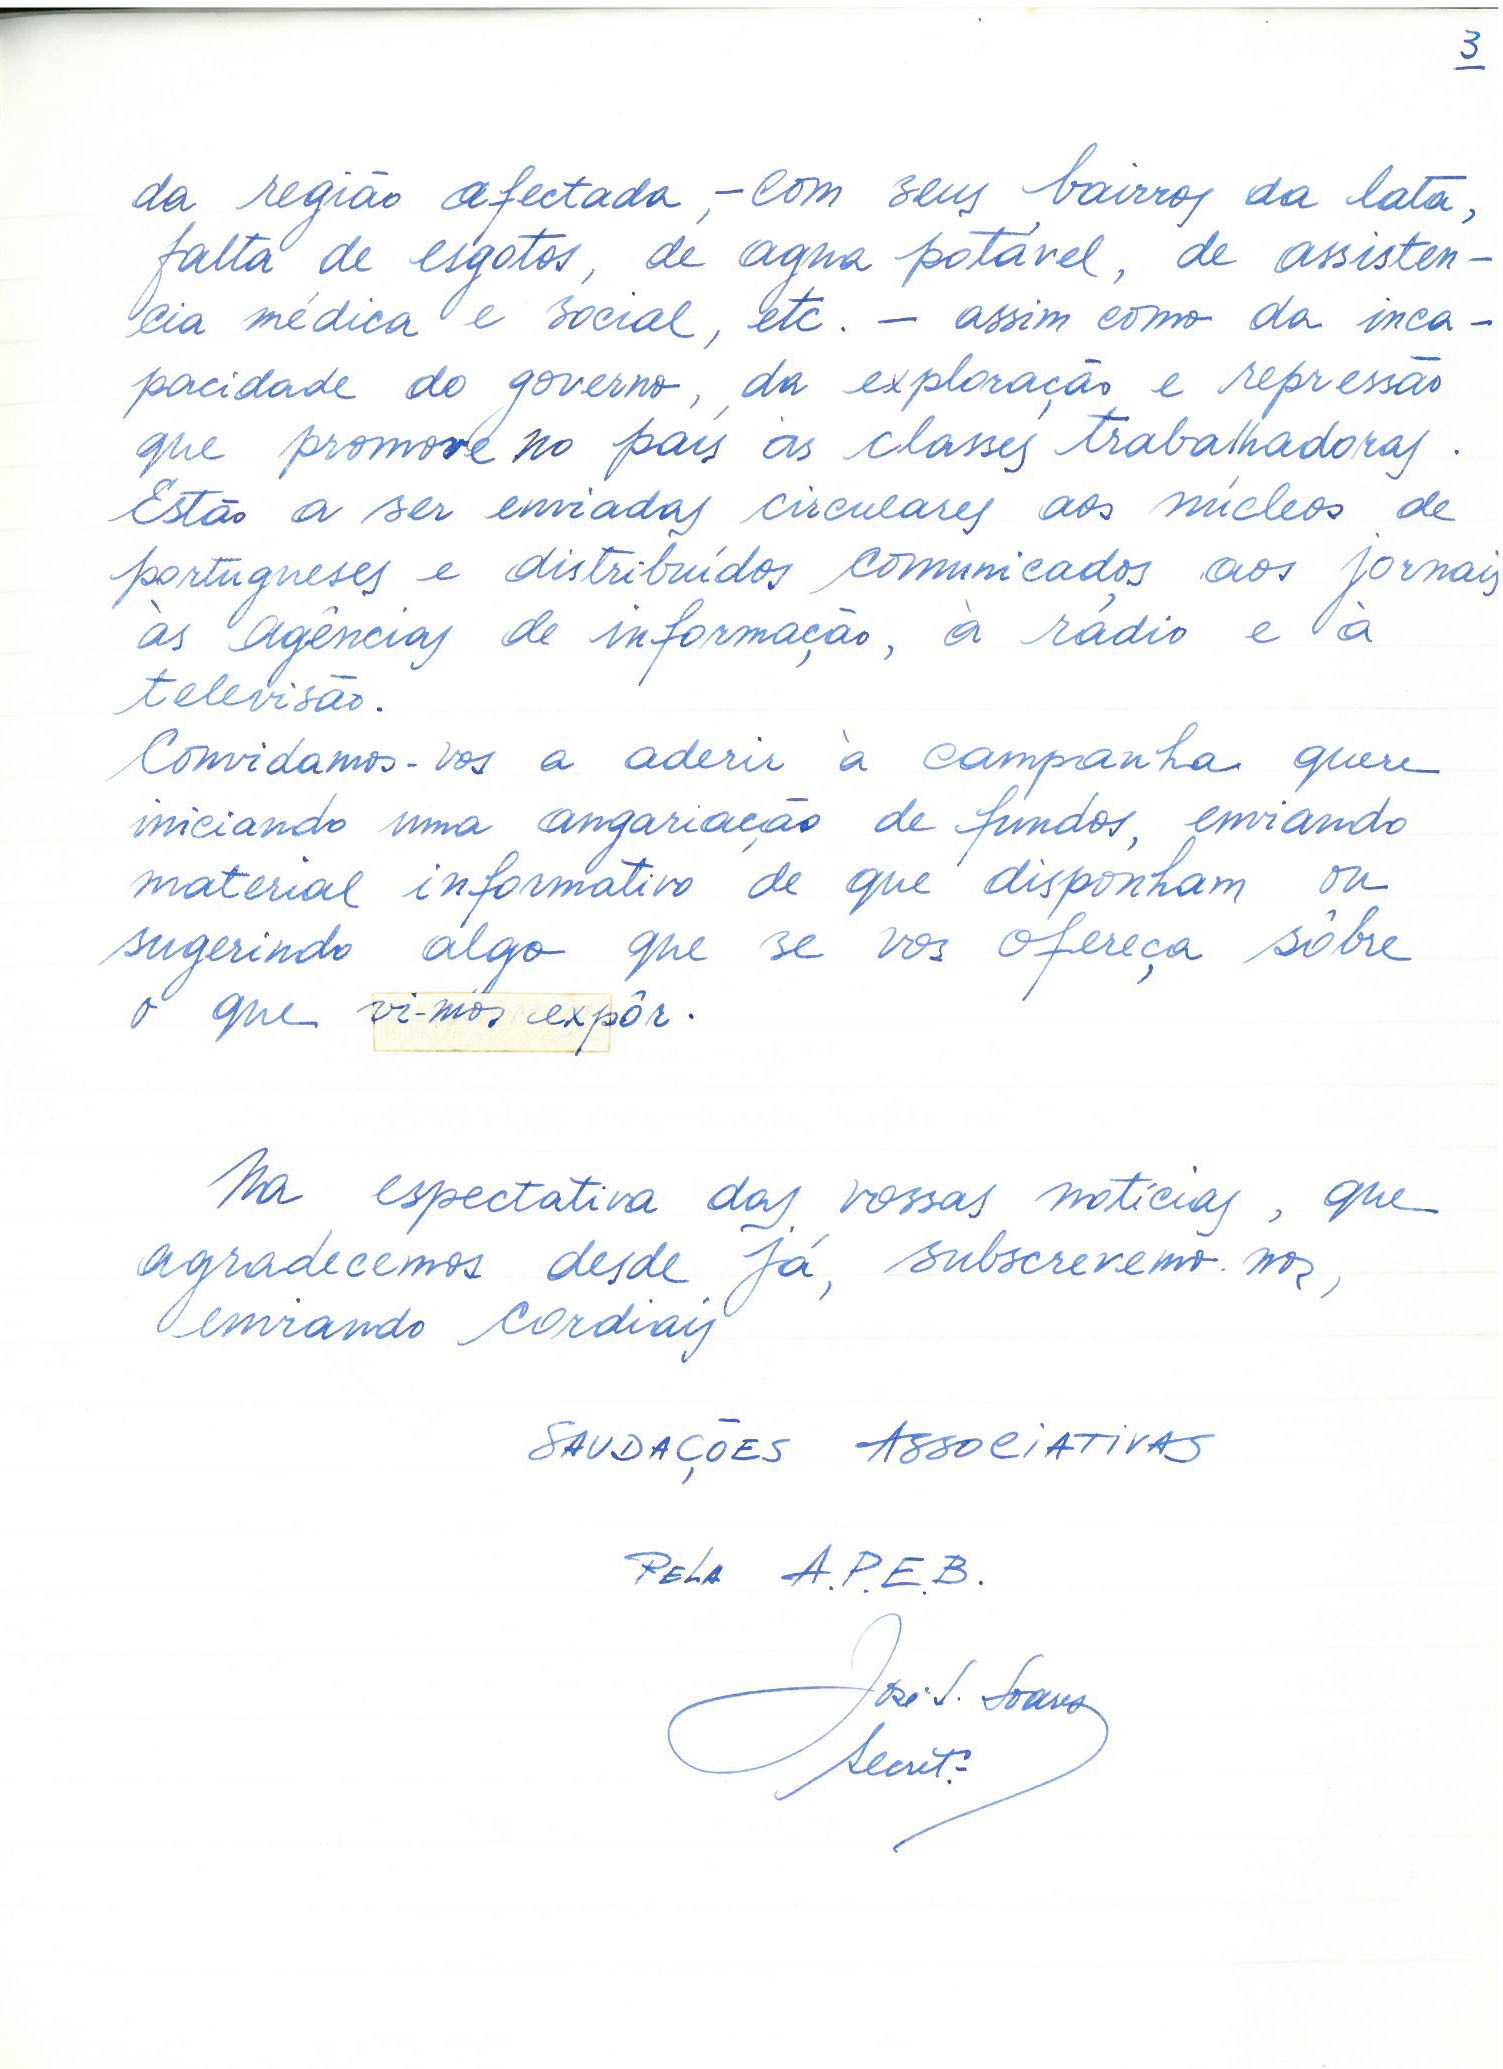 3
da região afectada, - com seus bairros da lata,
falta de esgotos, de agua potável, de assisten-
cia médica e social, etc. - assim como da inca-
pacidade do governo, da exploração e repressão
que promove no país às classes trabalhadoras.
Estão a ser enviadas circulares aos núcleos de
portugueses e distribuídos comunicados aos jornais
às agências de informação, à rádio e à
televisão.
Convidamos-vos a aderir à campanha quere
iniciando uma angariação de fundos, enviando
material informativo de que disponham ou
sugerindo algo que se vos ofereça sôbre
o que vi-mos expôr.
Na espectativa das vossas notícias, que
agradecemos desde já, subscrevemo-nos,
enviando cordiais
SAUDAÇÕES ASSOCIATIVAS
PELA A.P.E.B.
José J. Soares
Secret.º